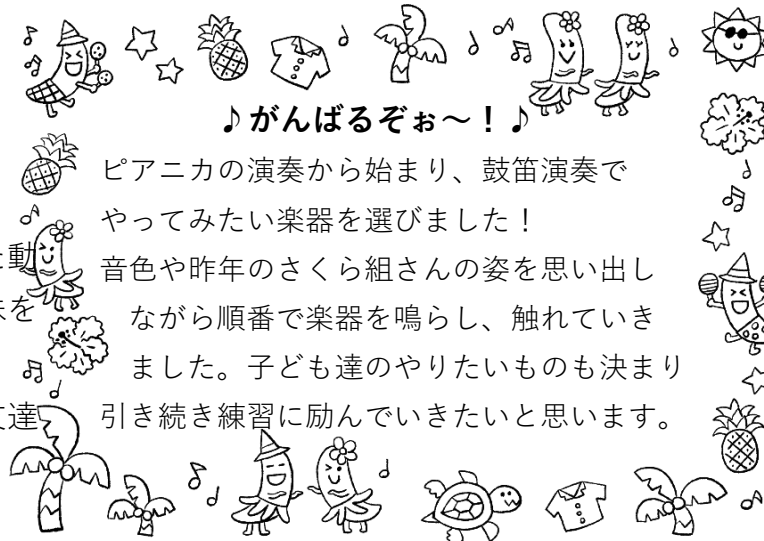 ♪がんばるぞぉ～！♪
ピアニカの演奏から始まり、鼓笛演奏で
やってみたい楽器を選びました！
音色や昨年のさくら組さんの姿を思い出し
ながら順番で楽器を鳴らし、触れていき
ました。子ども達のやりたいものも決まり
引き続き練習に励んでいきたいと思います。
動
を
達